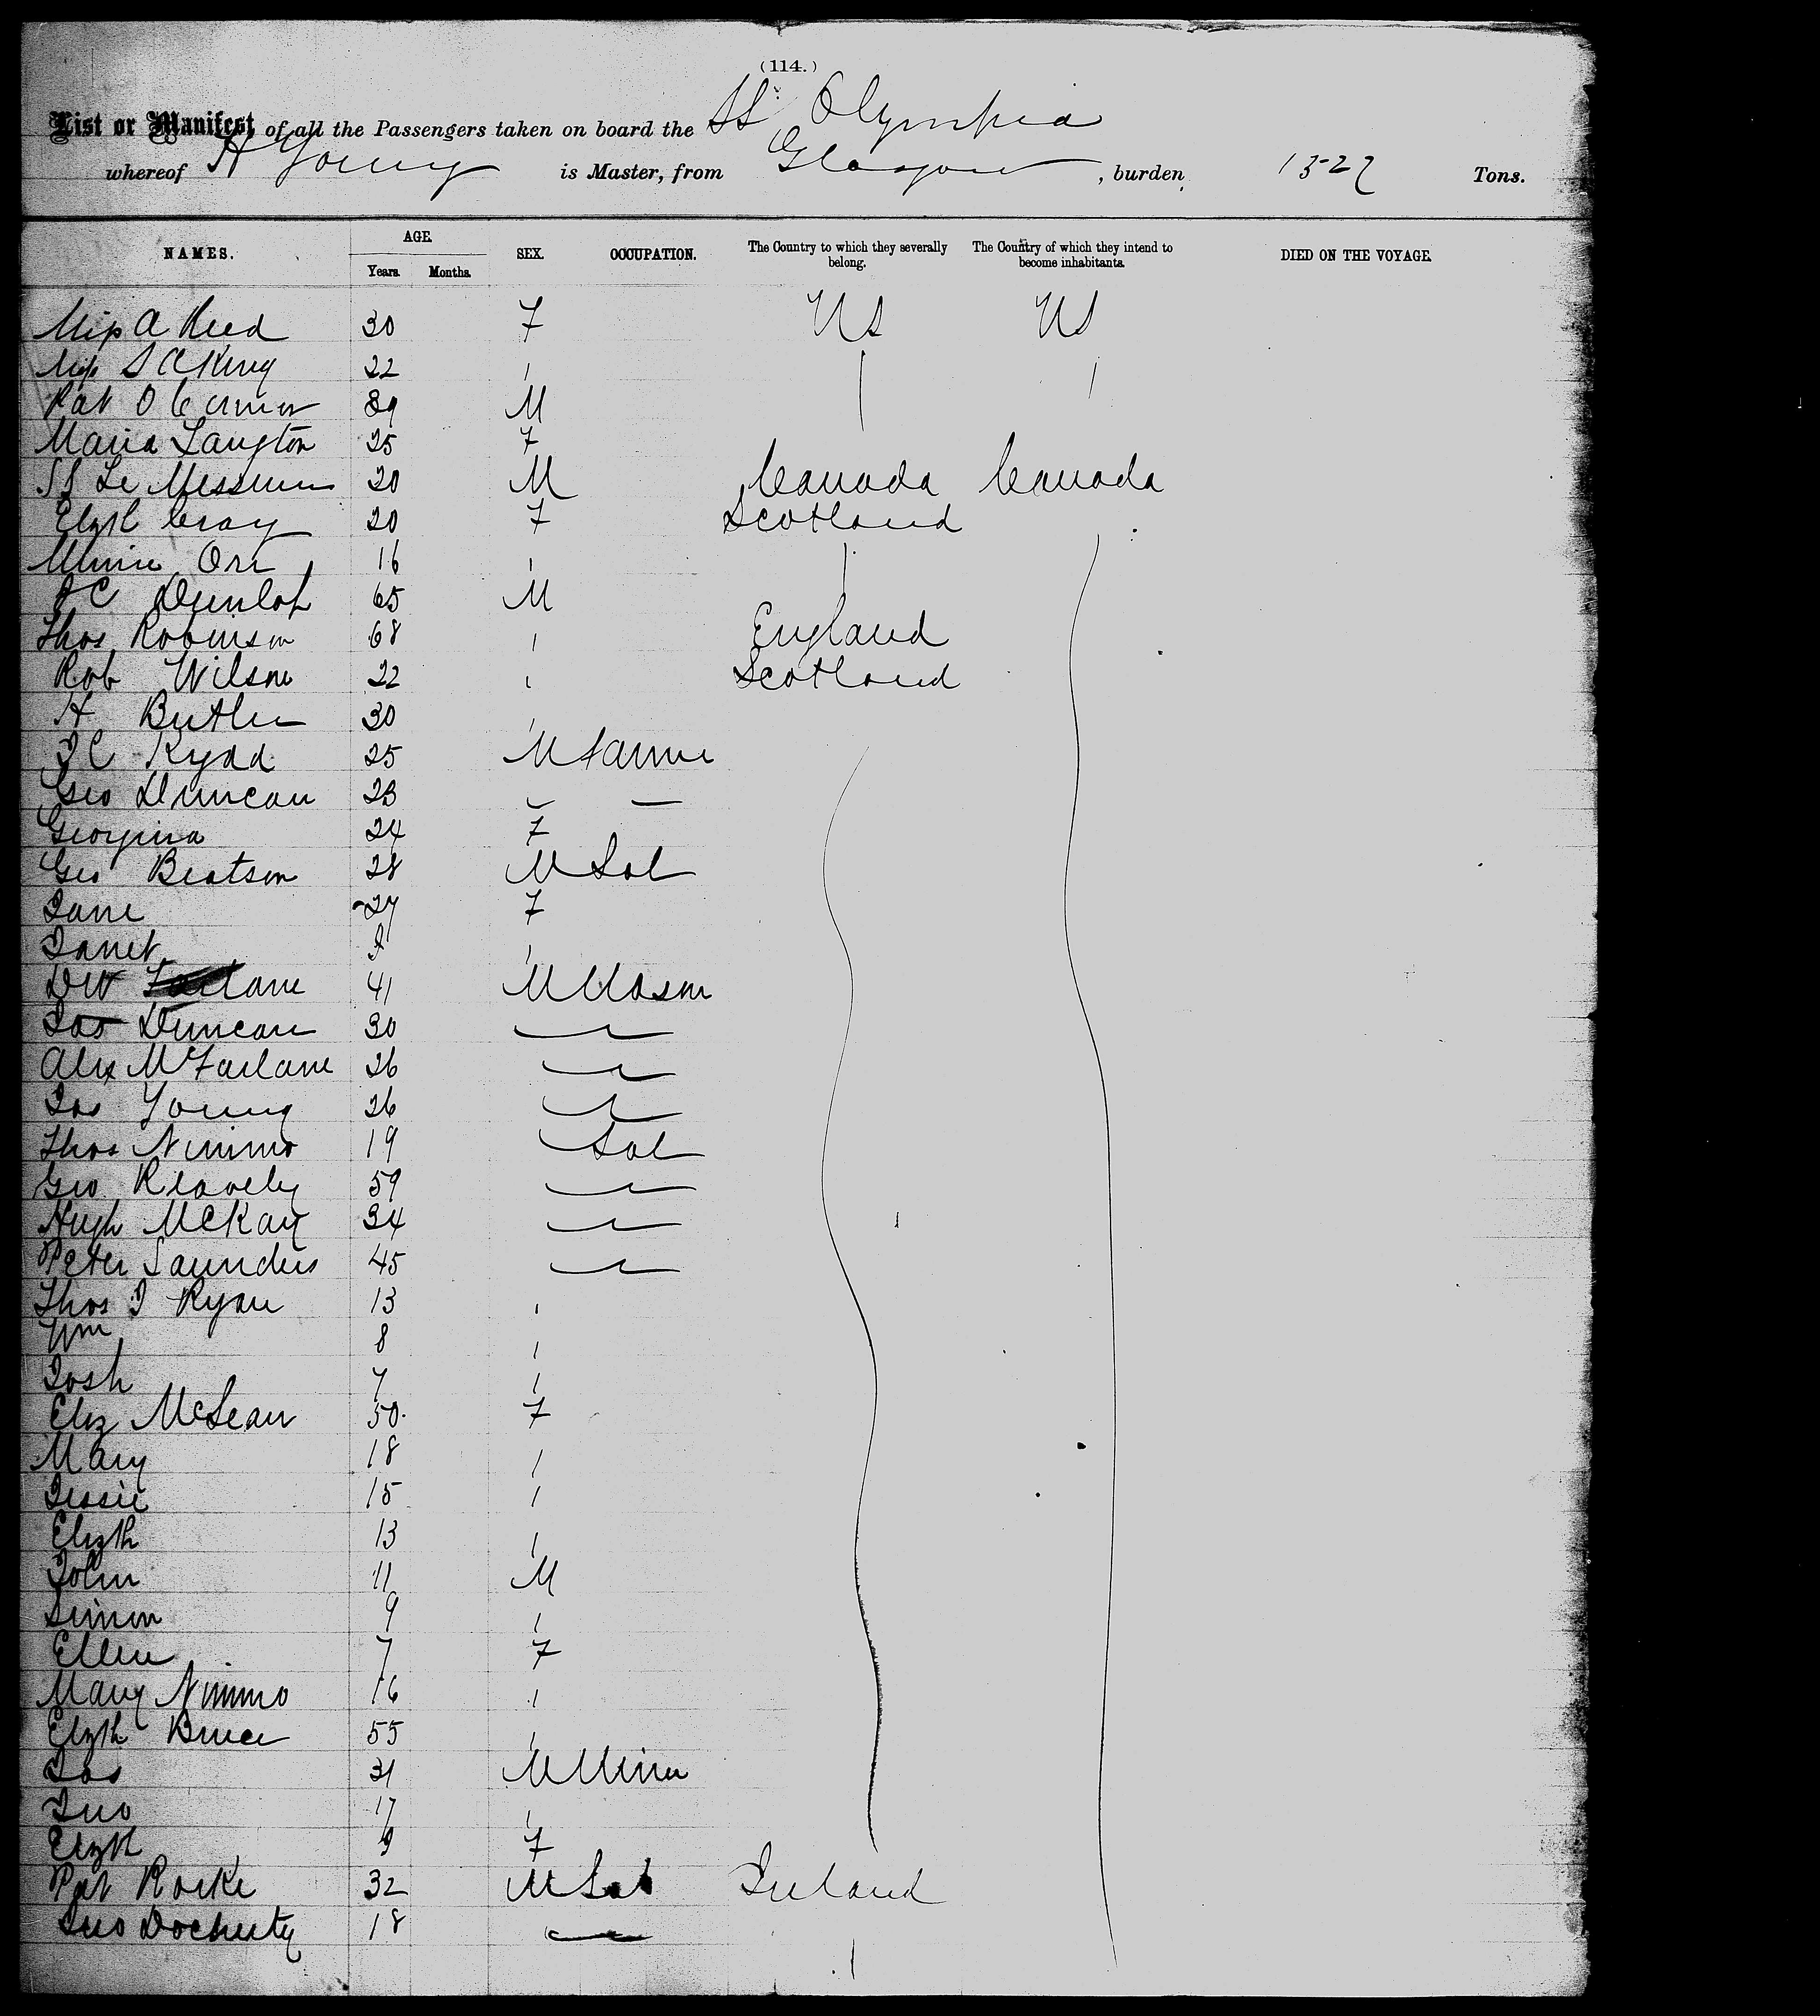 (114.)
List or Manifest of all the Passengers taken on board the SS Olympia
whereof A Young is Master, from Glasgow, burden 1527 Tons.
NAMES. AGE. SEX. OCCUPATION. The Country to which they severally belong. The Country of which they intend to become inhabitants. DIED ON THE VOYAGE.
Years. Months.
Miss A Reed 30 F US US
Miss S A King 22
Pat O Connor 39 M
Maria Langton 25 F
Le Messurier 20 M Canada Canada
Elizth Gray 20 F Scotland
Minnie Orr 16
J C Dunlop 65 M
Thos Robinson 68 England
Rob Wilson 22 Scotland
H Butler 30
J C Kydd 25 M Farmer
Geo Duncan 23
Georgina 24 F
Geo Beatson 28 M Lab
Jane 27 F
Janet
DW lane 41 M Mason
Jas Duncan 30
Alex McFarlane 26
Jas Young 26
Thos Nimmo 19 Lab
Geo Reavely 59
Hugh McKay 34
Peter Saunders 45
Thos J Ryan 13
Wm 8
Josh 7
Eliz McLean 50 F
Mary 18
Jessie 15
Elizth 13
John 11 M
Simon 9
Ellen 7 F
Mary Nimmo 16
Elizth Bruce 55
Jas 31 M Miner
Jno 17
Elizth 9 F
Pat Rorke 32 M Lab Ireland
Jno Docherty 18